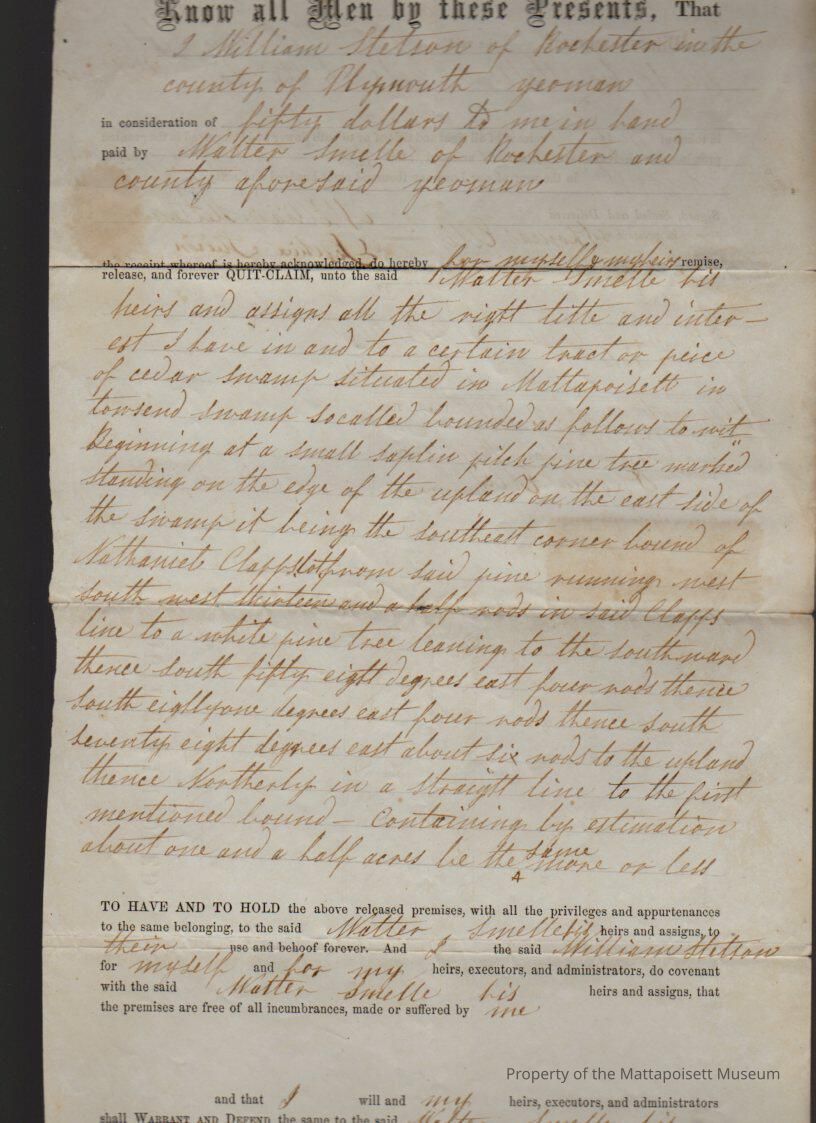 Know all Men by these Presents, That
I William Stetson of Rochester in the
county of Plymouth yeoman
in consideration of fifty dollars to me in hand
paid by Walter Smelle of Rochester and
county aforesaid yeoman
the receipt whereof is hereby acknowledged, do hereby for myself & my heirs remise,
release, and forever QUIT-CLAIM, unto the said Walter Smelle his
heirs and assigns all the right title and inter-
est I have in and to a certain tract or peice
of cedar swamp situated in Mattapoisett in
townsend swamp socalled bounded as follows to wit
Beginning at a small saplin pitch pine tree marked
standing on the edge of the upland on the east side of
the swamp it being the southeast corner bound of
Nathaniel Clapps lot from said pine running west
south west thirteen and a half rods in said Clapps
line to a white pine tree leaning to the southward
thence south fifty eight degrees east four rods thence
south eightyone degrees east four rods thence south
seventy eight degrees east about six rods to the upland
thence Northerly in a straight line to the first
mentioned bound – Containing by estimation
about one and a half acres be the same more or less
TO HAVE AND TO HOLD the above released premises, with all the privileges and appurtenances
to the same belonging, to the said Walter Smelle his heirs and assigns, to
their use and behoof forever. And I the said William Stetson
for myself and for my heirs, executors, and administrators, do covenant
with the said Walter Smelle his heirs and assigns, that
the premises are free of all incumbrances, made or suffered by me
Property of the Mattapoisett Museum
and that I will and my heirs, executors, and administrators
shall WARRANT AND DEFEND the same to the said Walter Smelle his